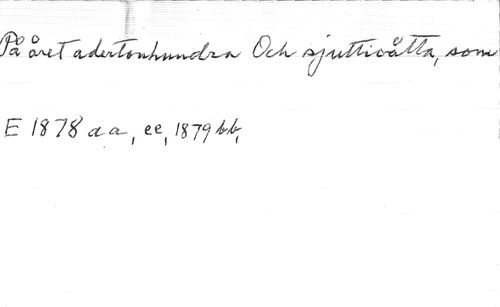 På året adertonhundra Och sjuttioåtta, som
E 1878 aa, ee, 1879 bb,